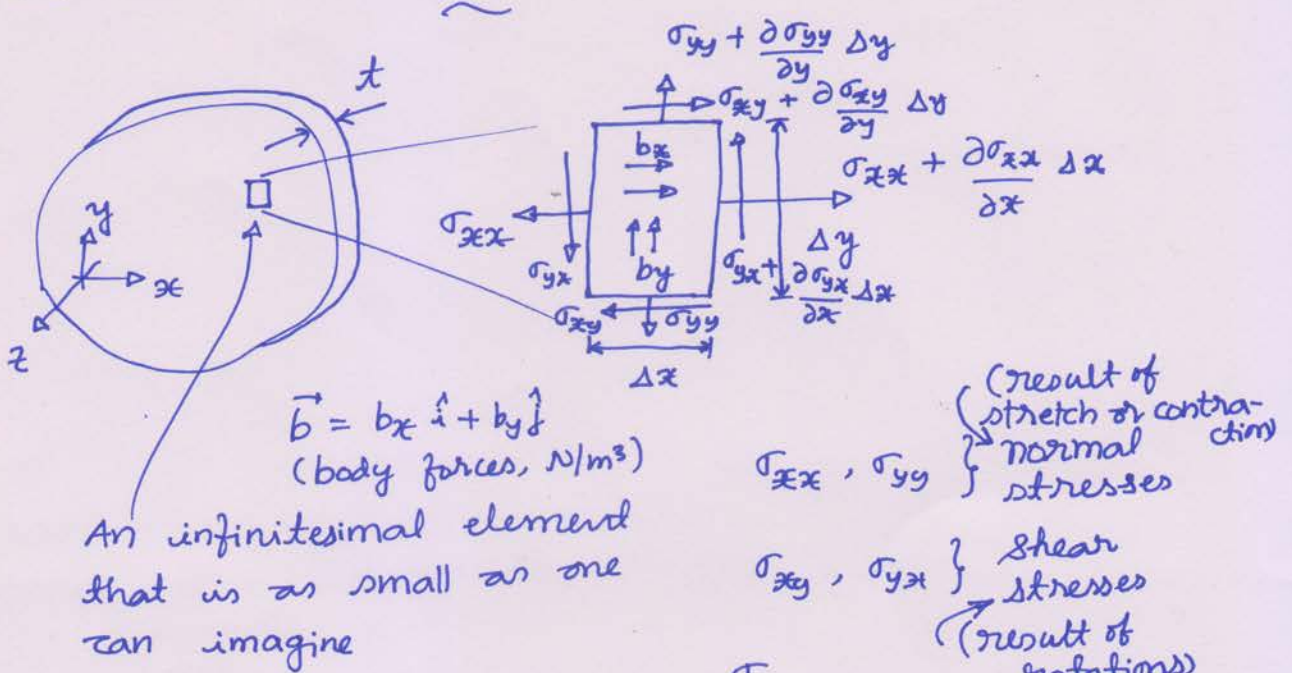 t
y
x
z
σyy + ∂σyy/∂y Δy
σxy + ∂σxy/∂y Δy
σxx + ∂σxx/∂x Δx
bx
by
σxx
σyx
σyx + ∂σyx/∂x Δx
Δy
σxy
σyy
Δx
b⃗ = bx î + by ĵ
(body forces, N/m³)
An infinitesimal element
that is as small as one
can imagine
(result of
stretch or contra-
ction)
σxx , σyy } normal
stresses
σxy , σyx } shear
stresses
(result of
rotations)